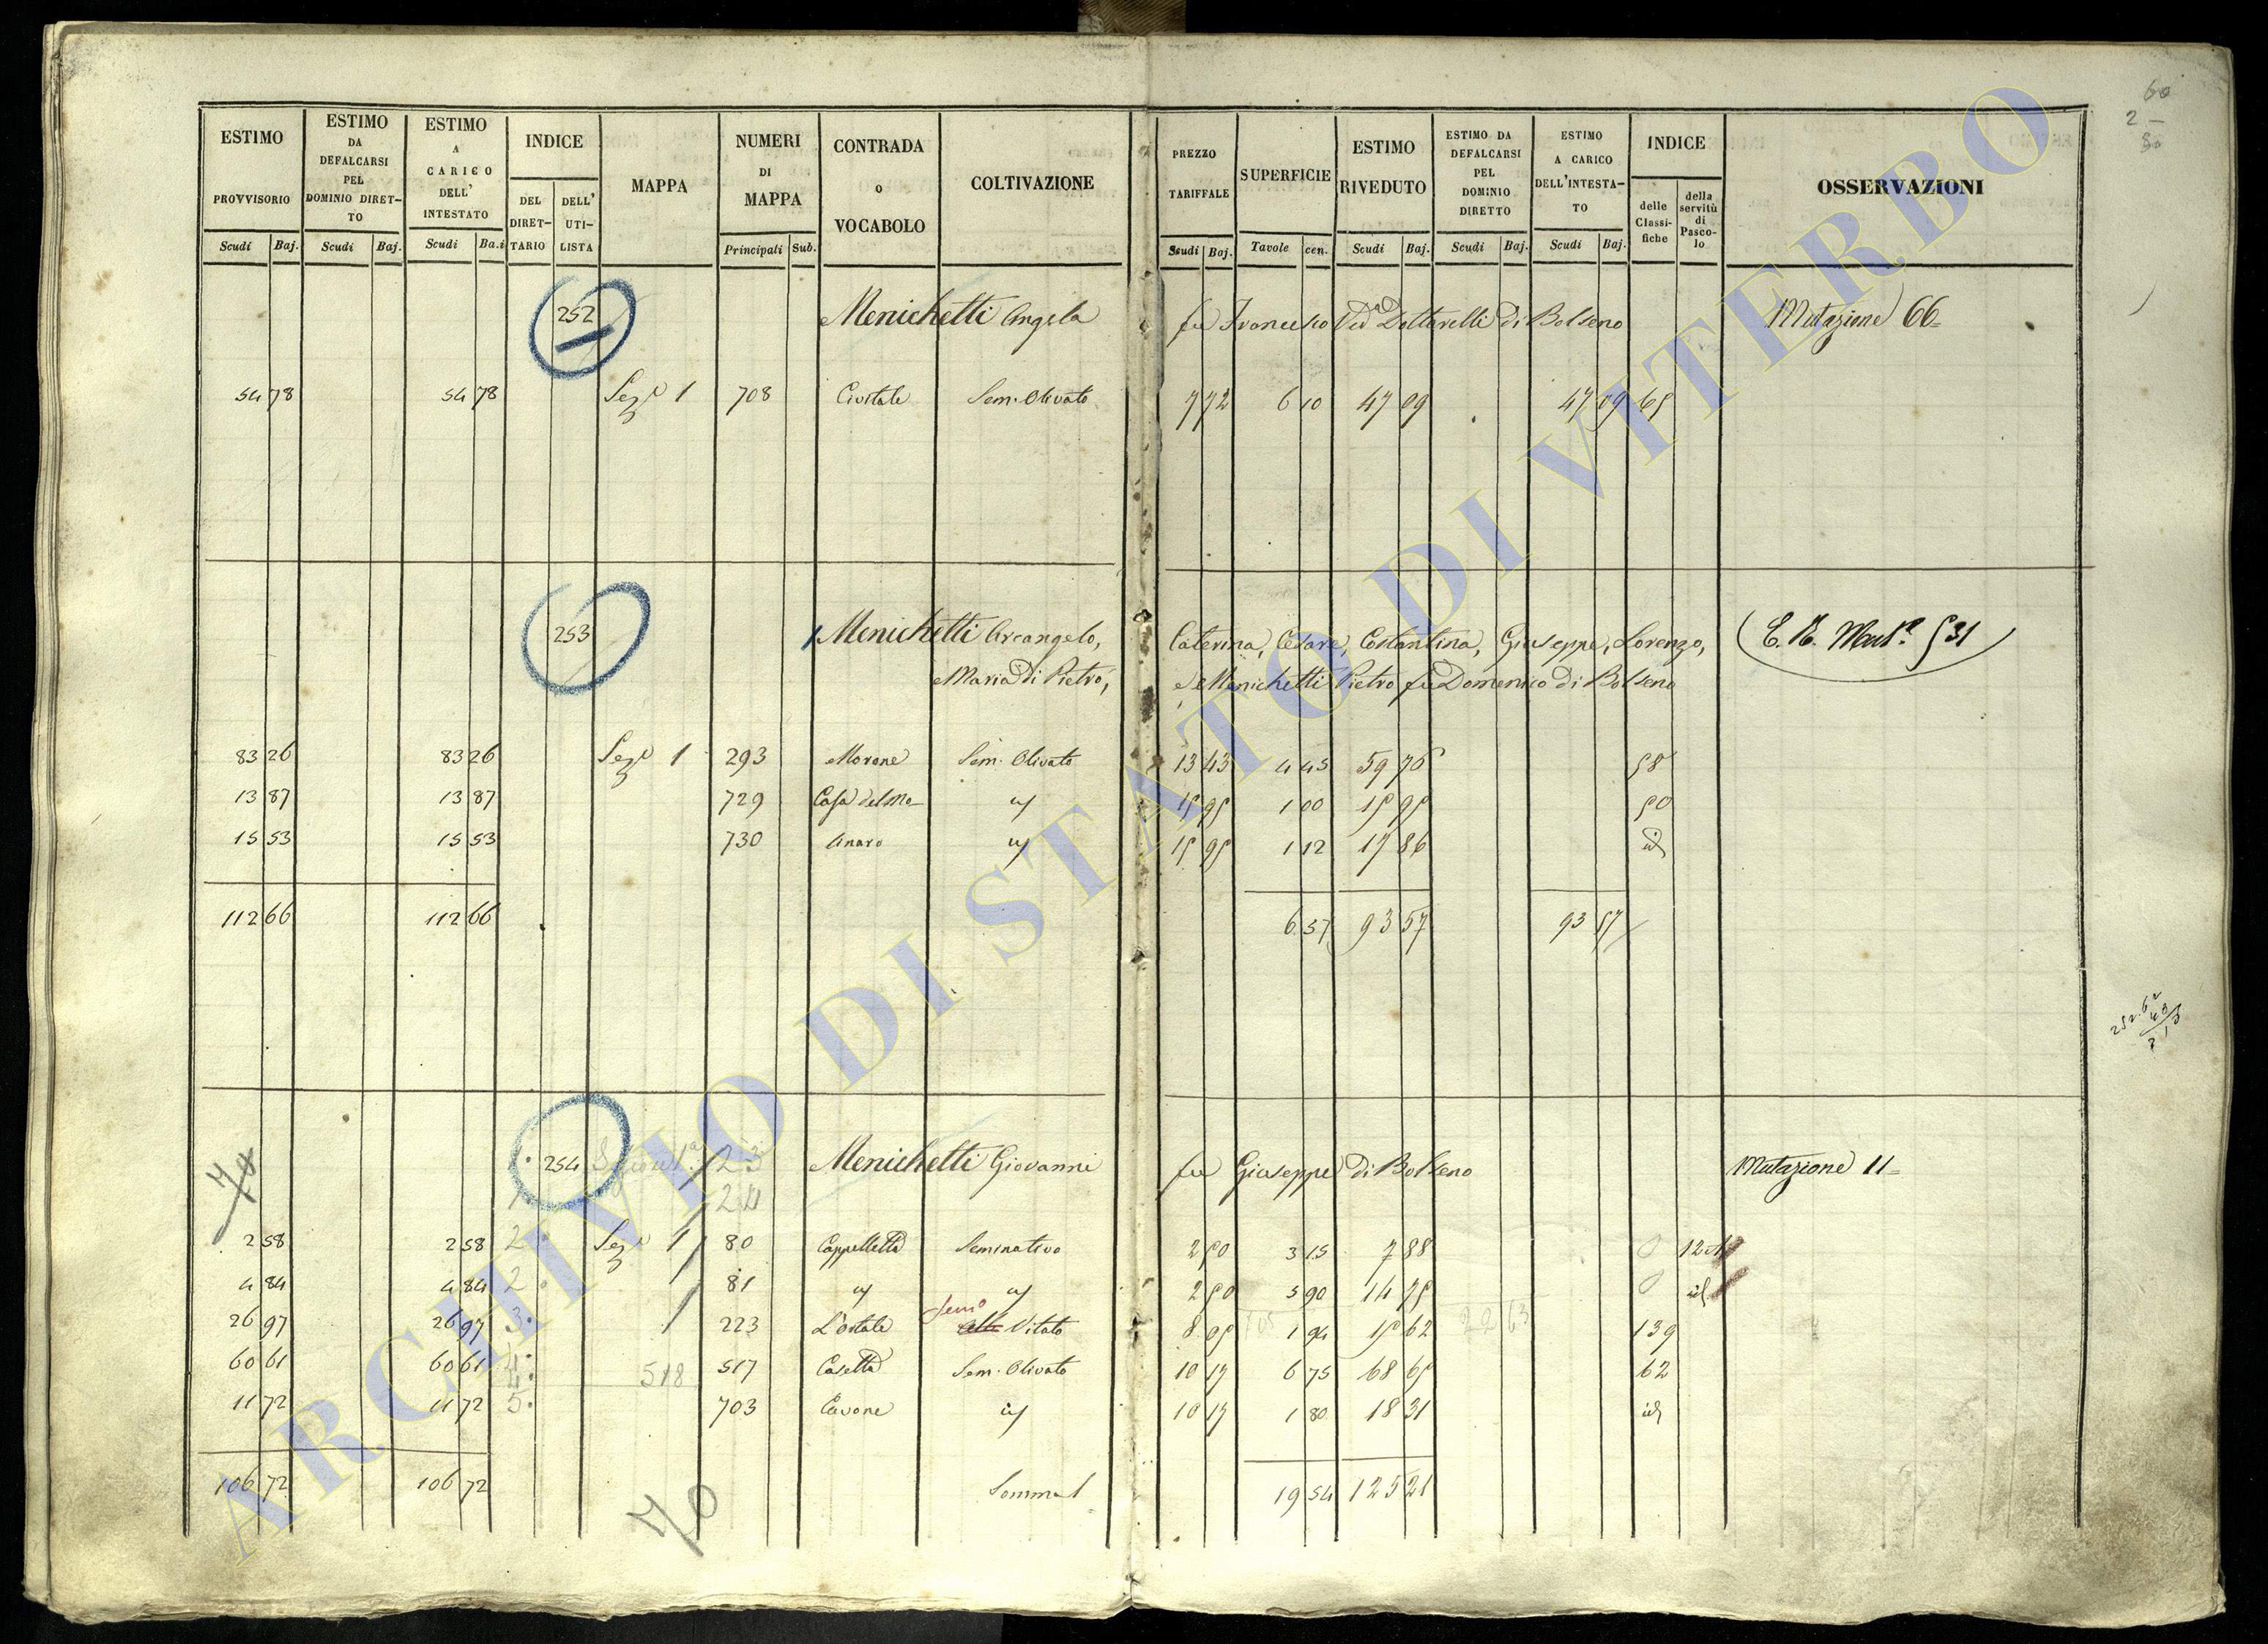 ESTIMO PROVVISORIO Scudi Baj.
ESTIMO DA DEFALCARSI PEL DOMINIO DIRET-TO Scudi Baj.
ESTIMO A CARICO DELL' INTESTATO Scudi Ba.i
INDICE DEL DIRET-TARIO DELL' UTI-LISTA
MAPPA
NUMERI DI MAPPA Principali Sub.
CONTRADA O VOCABOLO
COLTIVAZIONE
PREZZO TARIFFALE Scudi Baj.
SUPERFICIE Tavole cen.
ESTIMO RIVEDUTO Scudi Baj.
ESTIMO DA DEFALCARSI PEL DOMINIO DIRETTO Scudi Baj.
ESTIMO A CARICO DELL'INTESTA-TO Scudi Baj.
INDICE delle Classi-fiche della servitù di Pasco-lo
OSSERVAZIONI
60
2 -
252 Menichetti Angela fu Francesco Ved.a Dottarelli di Bolseno Mutazione 66
54 78 54 78 Sez.e 1 708 Civitale Sem. Olivato 7 72 6 10 47 09 47 09 65
253 Menichetti Arcangelo, Caterina, Cesare, Costantina, Giuseppe, Lorenzo, Mut.e 531
e Maria di Pietro, e Menichetti Pietro fu Domenico di Bolseno
83 26 83 26 Sez.e 1 293 Morone Sem. Olivato 13 43 4 45 59 76 58
13 87 13 87 729 Casa del Mo- " 15 95 1 00 15 95 50
15 53 15 53 730 linaro " 15 95 1 12 17 86 id
112 66 112 66 6 57 93 57 93 57
70
254 Sezione 1a 23 Menichetti Giovanni fu Giuseppe di Bolseno Mutazione 11
24
2 58 2 58 2 Sez.e 1 80 Cappelletta Seminativo 2 50 3 15 7 88 0 12
4 84 4 84 2 81 " " 2 50 5 90 14 75 0 id
26 97 26 97 3 223 L'Ostale Sem.o Vitato 8 05 1 94 15 62 22 63 139
60 61 60 61 4 518 517 Casetta Sem. Olivato 10 17 6 75 68 65 62
11 72 11 72 5 703 Cavone " 10 17 1 80 18 31 id
106 72 106 72 Somma 19 54 125 21
70
ARCHIVIO DI STATO DI VITERBO